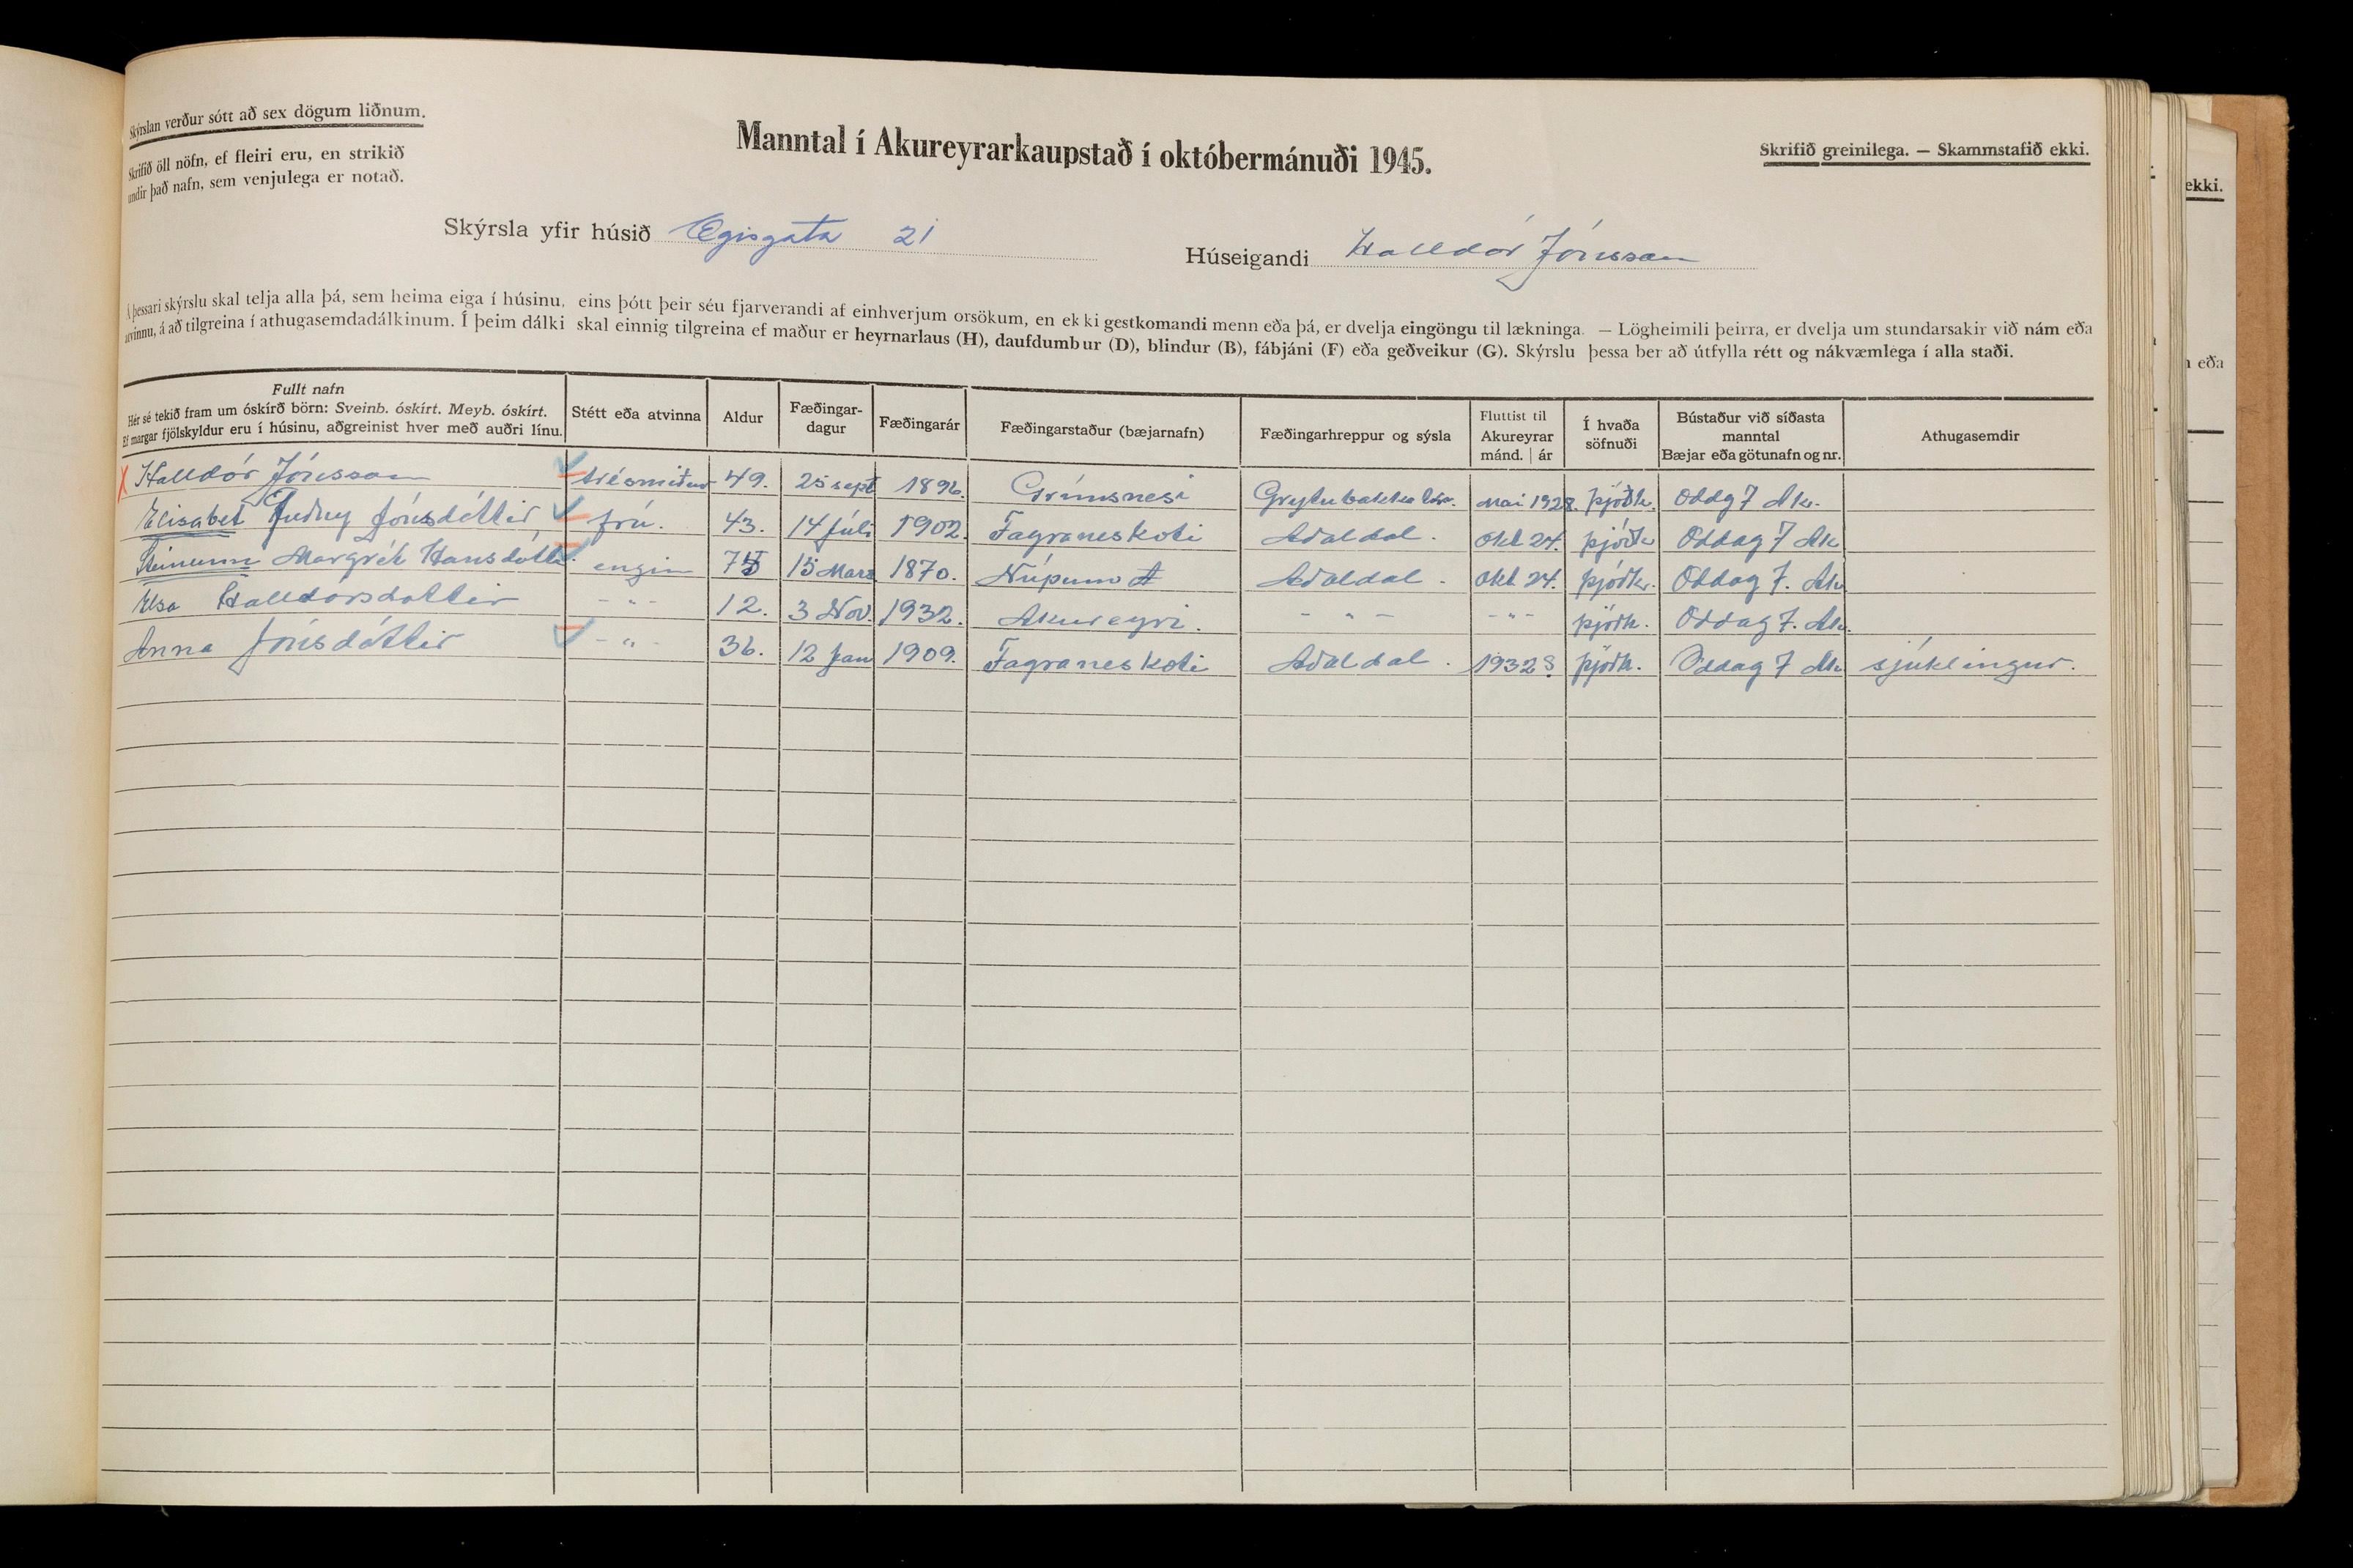 Skýrslan verður sótt að sex dögum liðnum.
Skrifið öll nöfn, ef fleiri eru, en strikið
undir það nafn, sem venjulega er notað.
Manntal í Akureyrarkaupstað í októbermánuði 1945.
Skrifið greinilega. — Skammstafið ekki.
ekki.
Skýrsla yfir húsið Ægisgata 21
Húseigandi Halldór Jónsson
Á þessari skýrslu skal telja alla þá, sem heima eiga í húsinu, eins þótt þeir séu fjarverandi af einhverjum orsökum, en ekki gestkomandi menn eða þá, er dvelja eingöngu til lækninga. — Lögheimili þeirra, er dvelja um stundarsakir við nám eða
atvinnu, á að tilgreina í athugasemdadálkinum. Í þeim dálki skal einnig tilgreina ef maður er heyrnarlaus (H), daufdumbur (D), blindur (B), fábjáni (F) eða geðveikur (G). Skýrslu þessa ber að útfylla rétt og nákvæmlega í alla staði.
eða
Fullt nafn
Hér sé tekið fram um óskírð börn: Sveinb. óskírt. Meyb. óskírt.
Ef margar fjölskyldur eru í húsinu, aðgreinist hver með auðri línu.
Stétt eða atvinna
Aldur
Fæðingar-
dagur
Fæðingarár
Fæðingarstaður (bæjarnafn)
Fæðingarhreppur og sýsla
Fluttist til
Akureyrar
mánd. | ár
Í hvaða
söfnuði
Bústaður við síðasta
manntal
Bæjar eða götunafn og nr.
Athugasemdir
Halldór Jónsson trésmiður 49. 25 sept 1896. Grímsnesi Grýtubakka hr. Mai 1928. þjóðk. Oddg 7 Ak.
Elisabet Guðny Jónsdóttir frú. 43. 14 júli 1902. Fagraneskoti Aðaldal. Okt 24. þjóðk Oddag 7 Ak
Steinunn Margrét Hansdóttir engin 75 15 Mars 1870. Núpum Aðaldal. Okt 24. þjóðkr. Oddag 7. Ak
Elsa Halldorsdottir -"- 12. 3 Nov. 1932. Akureyri. -"- -"- þjóðk. Oddag 7. Ak.
Anna Jónsdóttir -"- 36. 12 Jan 1909. Fagraneskoti Aðaldal. 1932 þjóðk. Oddag 7 Ak sjúklingur.